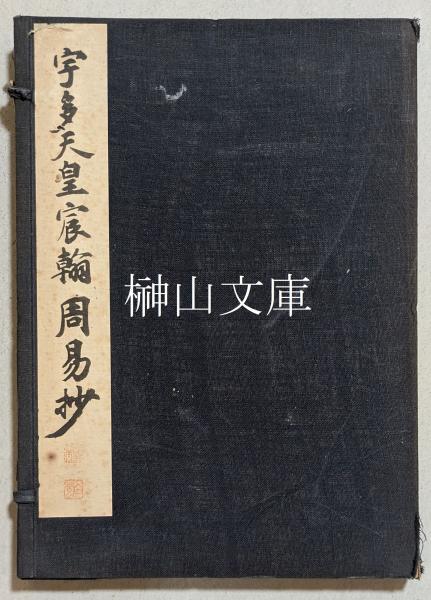 宇多天皇宸翰周易抄
榊山文庫